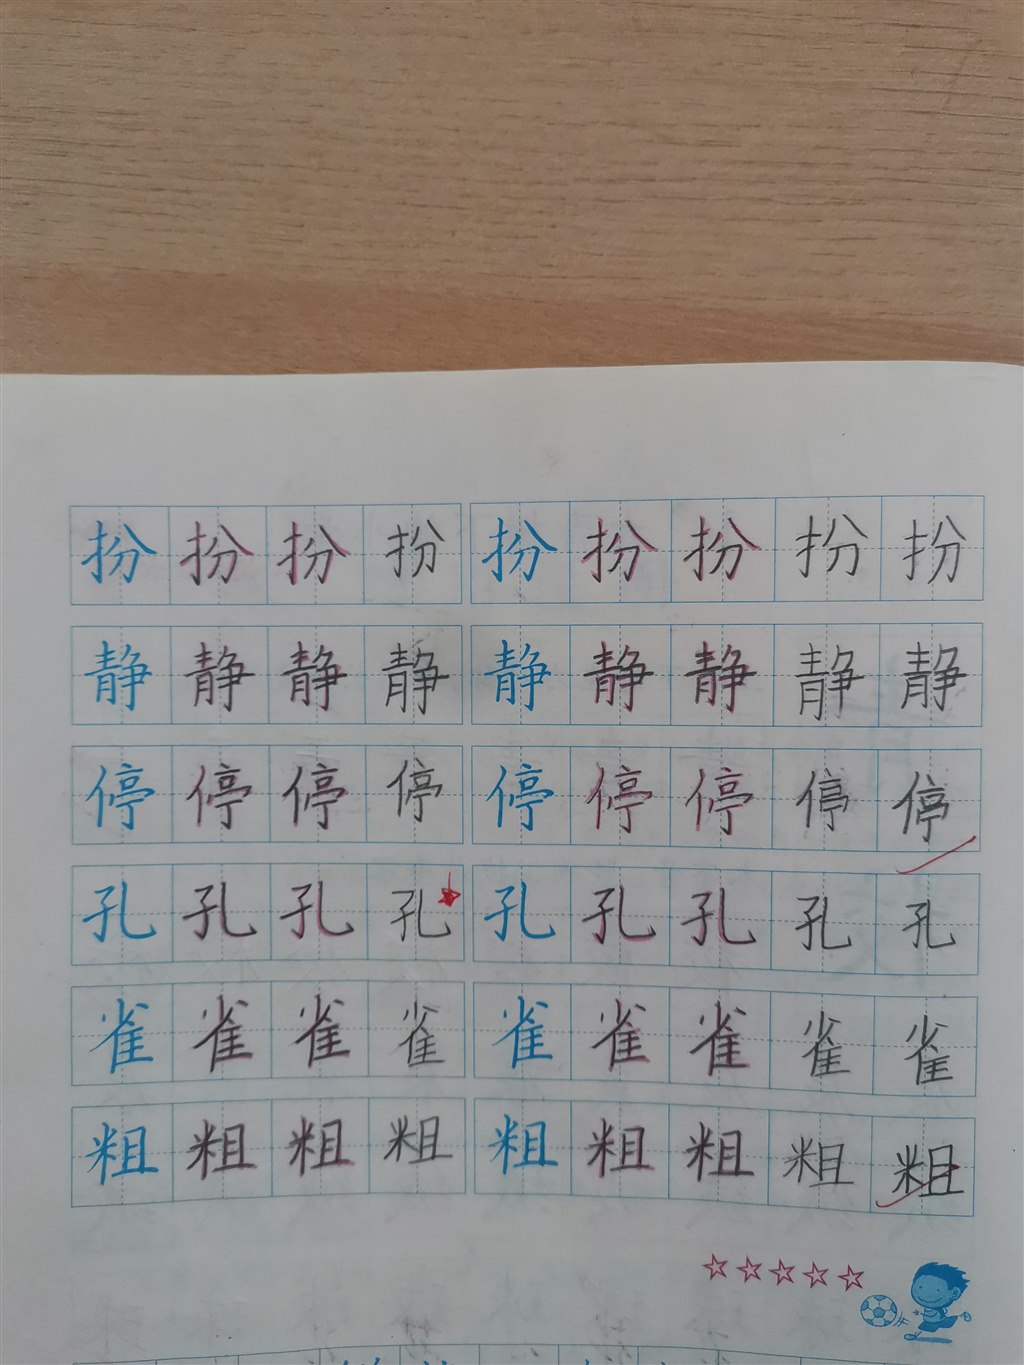 扮扮扮扮扮扮扮扮扮
静静静静静静静静静
停停停停停停停停停
孔孔孔孔孔孔孔孔孔
雀雀雀雀雀雀雀雀雀
粗粗粗粗粗粗粗粗粗